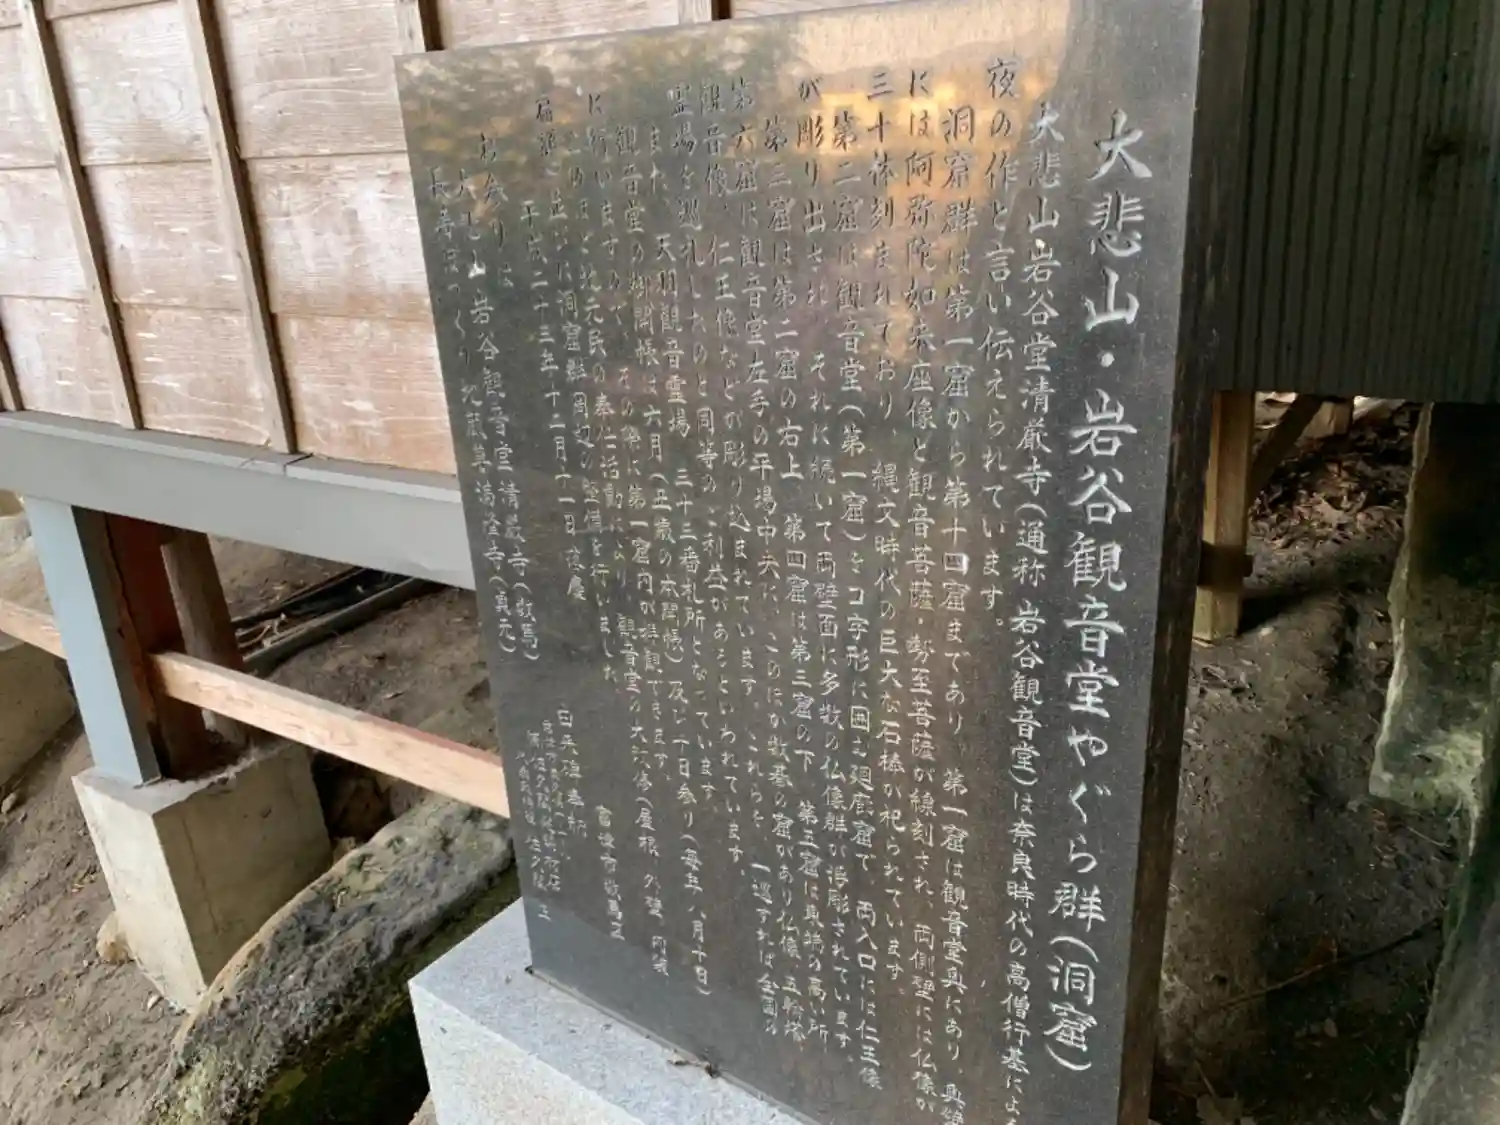 大悲山・岩谷観音堂やぐら群(洞窟)
大悲山岩谷堂清厳寺(通称 岩谷観音堂)は奈良時代の高僧行基による
夜の作と言い伝えられています。
洞窟群は第一窟から第十四窟まであり、第一窟は観音堂奥にあり、奥壁
には阿弥陀如来座像と観音菩薩・勢至菩薩が線刻され、両側壁には仏像が
三十体刻まれており、縄文時代の巨大な石棒が祀られています。
第二窟は観音堂(第一窟)をコ字形に囲む廻廊窟で、両入口には仁王像
が彫り出され、それに続いて両壁面に多数の仏像群が浮彫されています。
第三窟は第二窟の右上、第四窟は第三窟の下、第五窟は奥の高い所
第六窟は観音堂左手の平場中央に、このほか数基の窟があり仏像、五輪塔、
観音像、仁王像などが彫り込まれています。これらを、一巡すれば全国の
霊場を巡礼したのと同等のご利益があるといわれています。
また、天羽観音霊場 三十三番札所となっています。
観音堂の御開帳は六月(五歳の本開帳)及び十日参り(毎年八月十日)
に行いますので、その際に第一窟内が拝観できます。
このほど地元民の奉仕活動により、観音堂の大改修(屋根、外壁、
並びに洞窟群周辺の整備を行いました。
平成二十三年十二月十一日 落慶
富津市数馬区
お参りは
大悲山 岩谷観音堂 清厳寺(数馬)